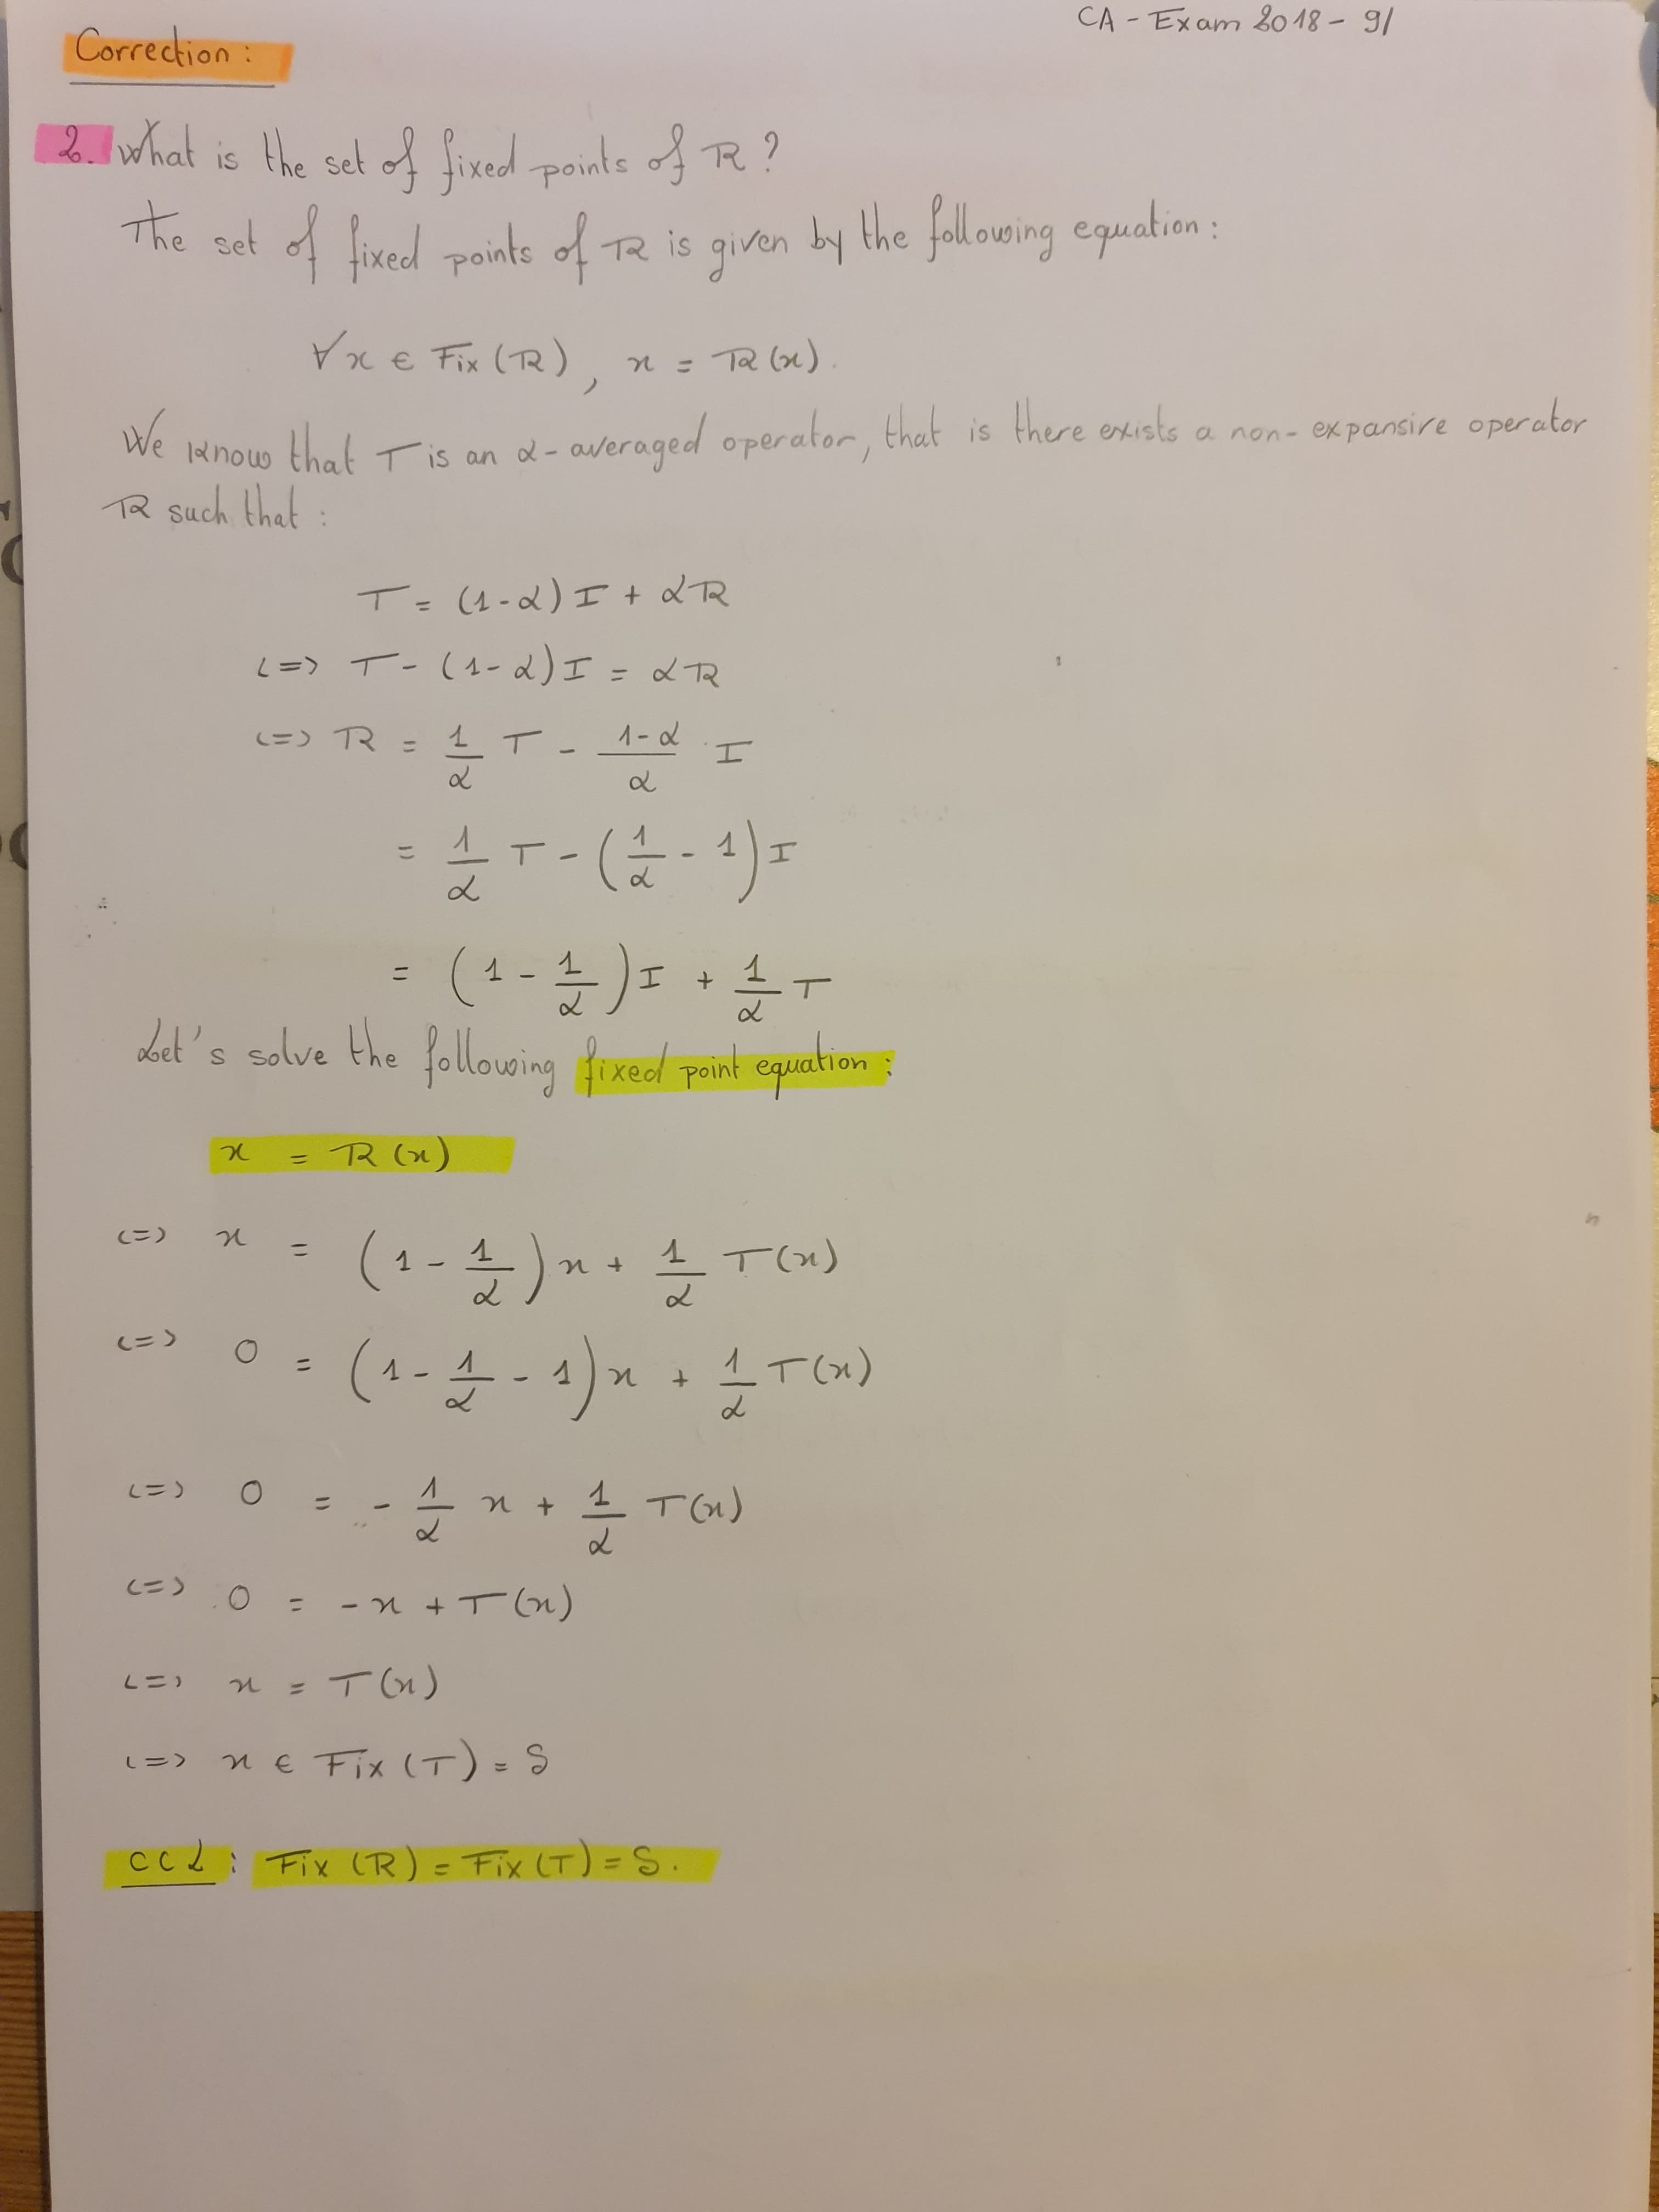 CA - Exam 2018 - 9/
Correction :
2. What is the set of fixed points of R ?
The set of fixed points of R is given by the following equation :
∀x ∈ Fix (R), x = R(x).
We know that T is an α-averaged operator, that is there exists a non-expansive operator
R such that :
T = (1-α) I + αR
<=> T - (1-α) I = αR
<=> R = 1/α T - (1-α)/α · I
= 1/α T - (1/α - 1) I
= (1 - 1/α) I + 1/α T
Let's solve the following fixed point equation :
x = R(x)
<=> x = (1 - 1/α) x + 1/α T(x)
<=> 0 = (1 - 1/α - 1) x + 1/α T(x)
<=> 0 = - 1/α x + 1/α T(x)
<=> 0 = -x + T(x)
<=> x = T(x)
<=> x ∈ Fix (T) = S
CCL : Fix (R) = Fix (T) = S.